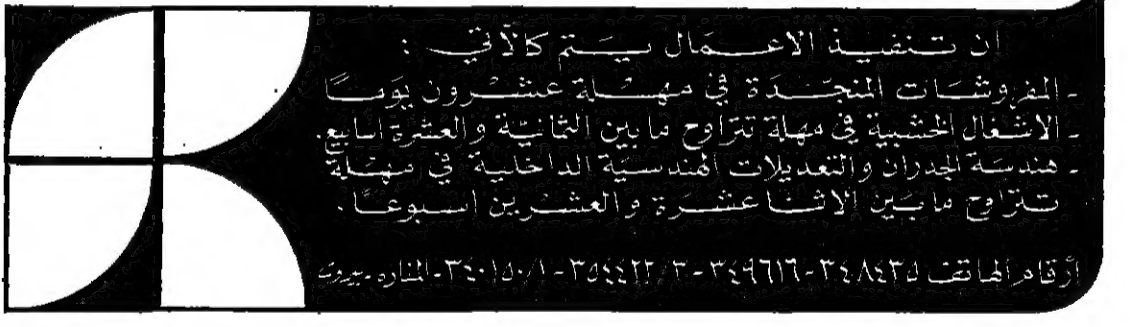 ان تنفيذ الاعمال يتم كالآتي :
- المفروشات المنجّدة في مهلة عشرون يومًا
- الاشغال الخشبية في مهلة تتراوح ما بين الثانية والعشرة اسابيع.
- هندسة الجدران والتعديلات الهندسية الداخلية في مهلة
تتراوح ما بين الاثنا عشرة والعشرين اسبوعًا .
أرقام الهاتف ٣٤٨٤٣٥ - ٣٤٩٦١٦ - ٣٥٤٤٢٢/٣ - ٣٤٠١٥٠/١ - المناره - بيروت